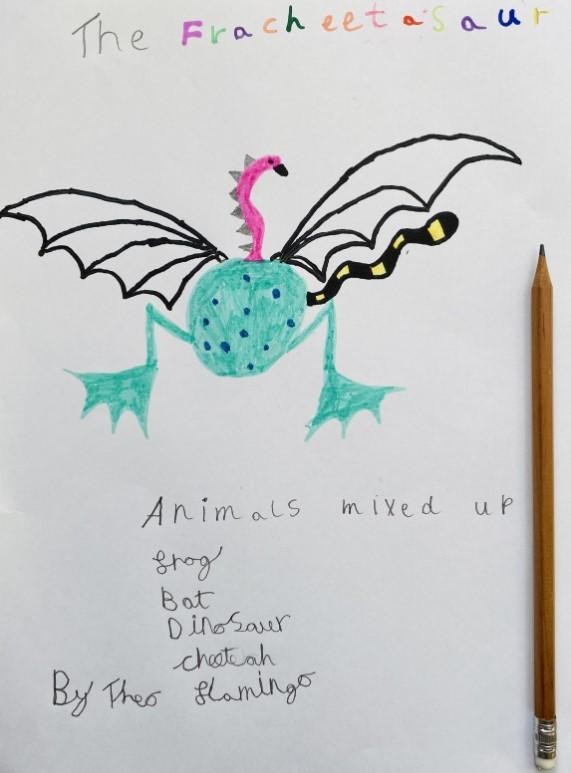 The Fracheetasaur
Animals mixed up
frog
Bat
Dinosaur
cheeteah
By Theo flamingo